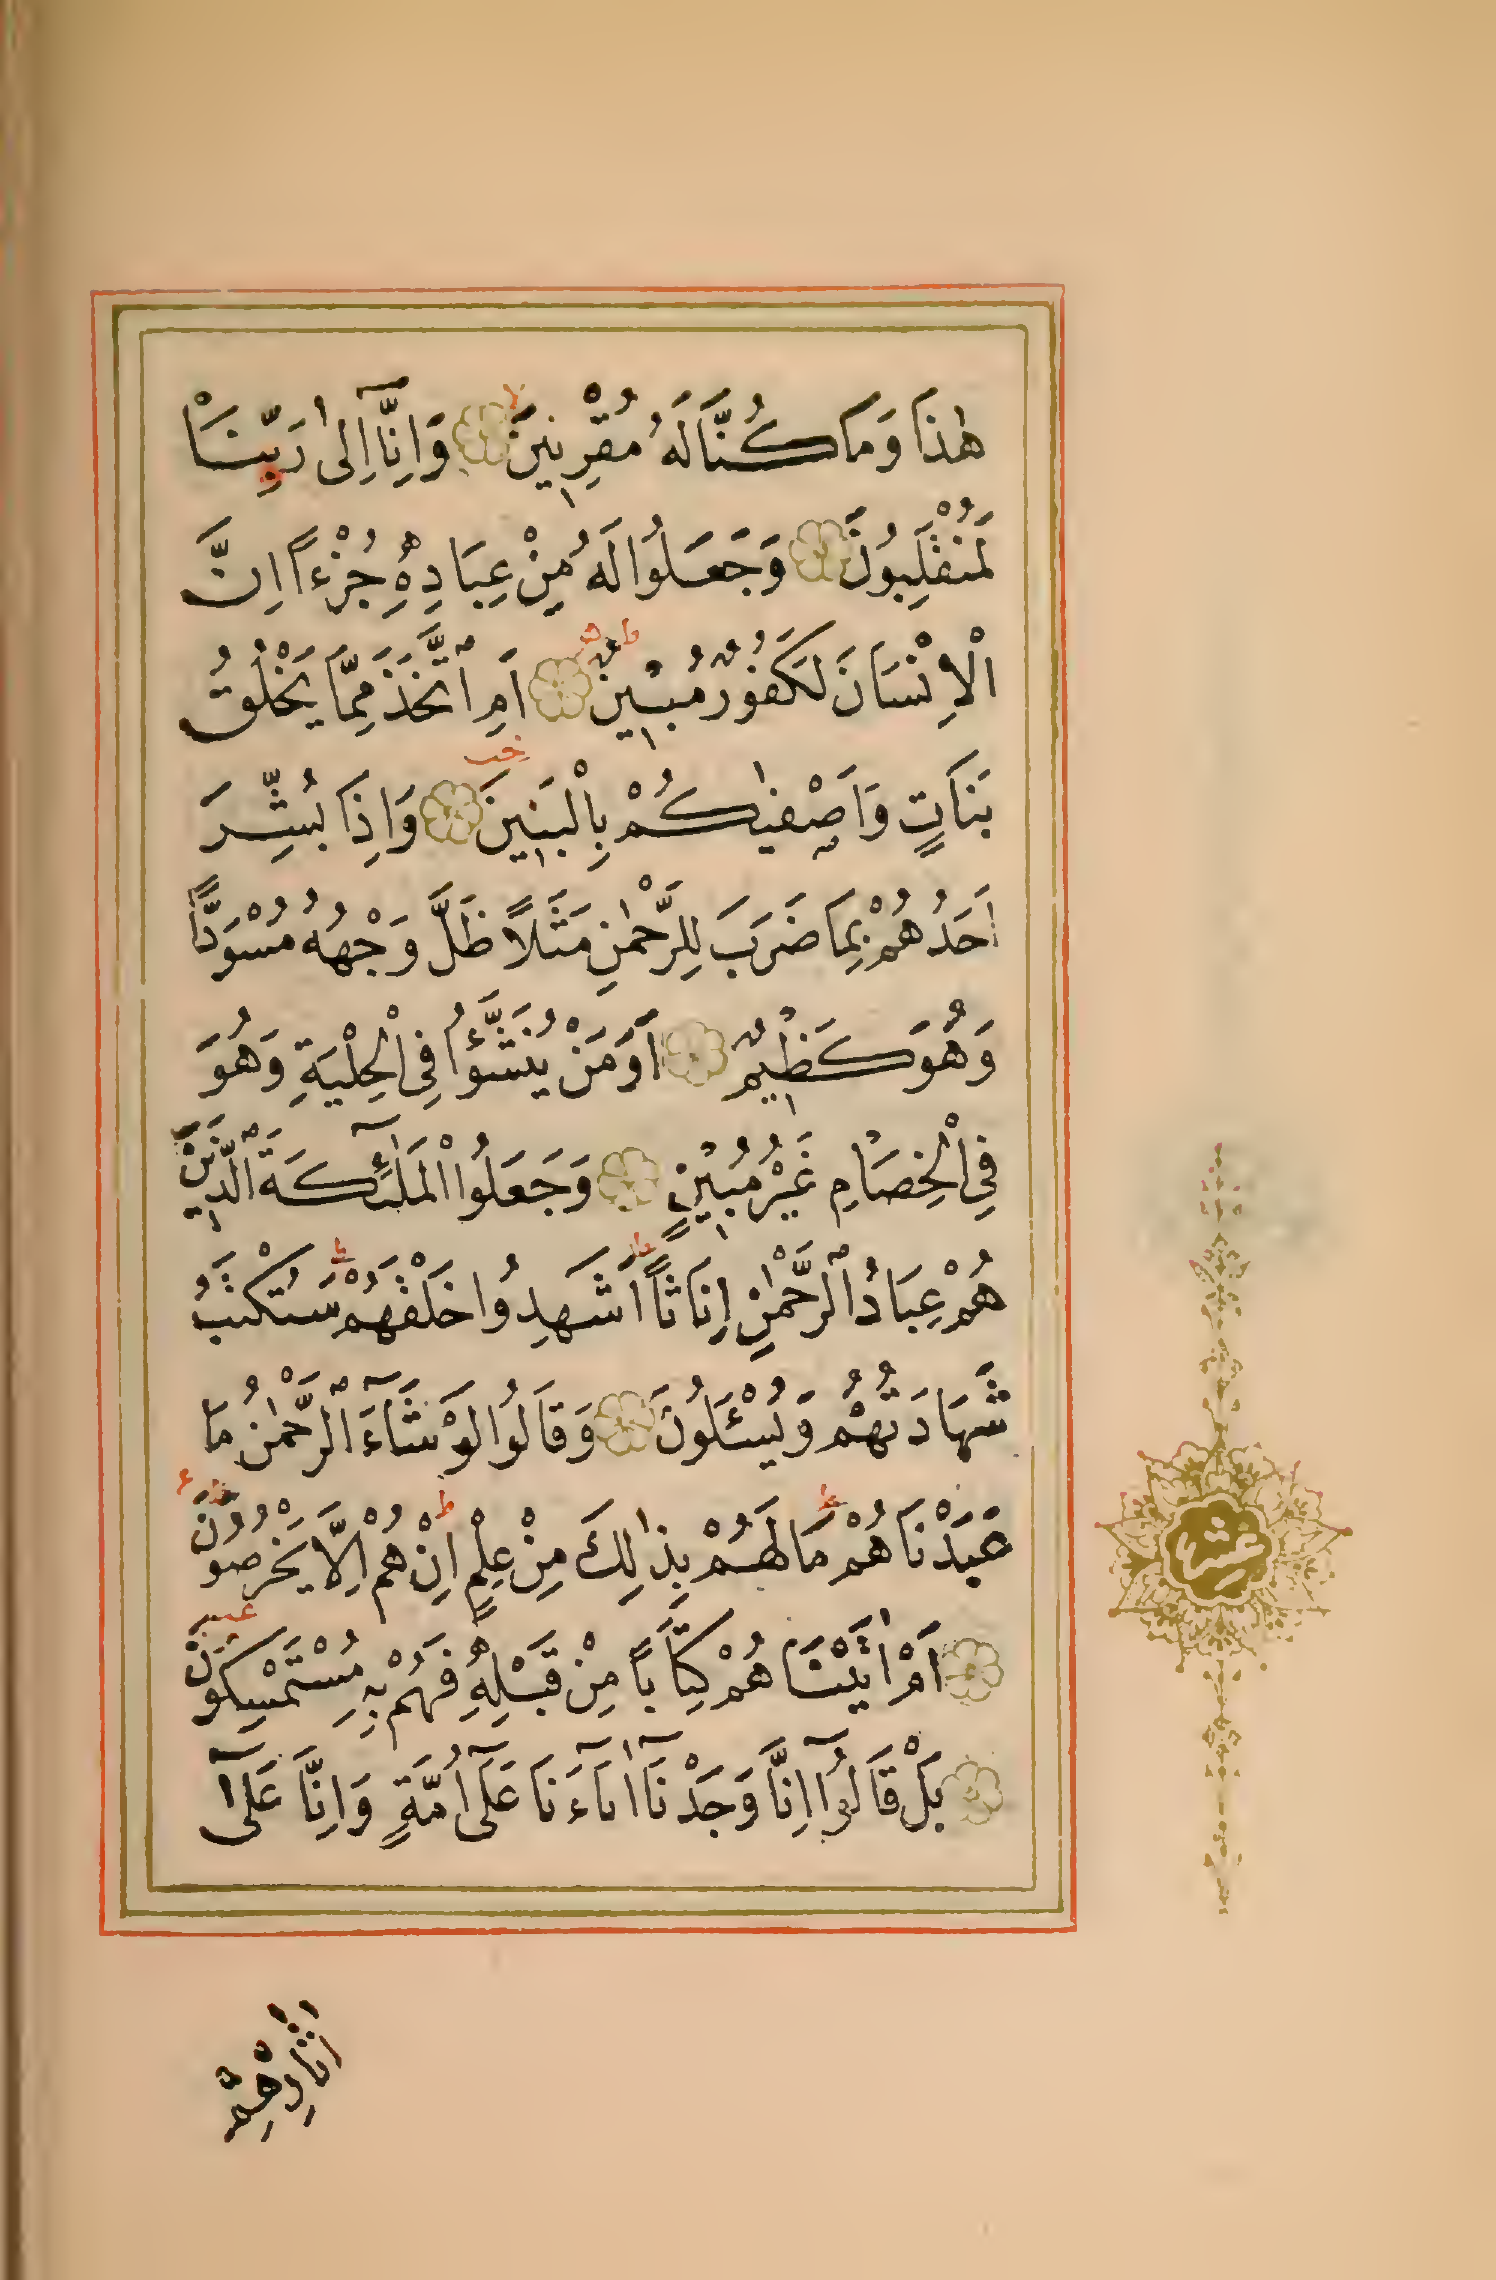 هٰذَا وَمَا كُنَّا لَهُ مُقْرِنِينَ وَاِنَّٓا اِلٰى رَبِّنَا
لَمُنْقَلِبُونَ وَجَعَلُوا لَهُ مِنْ عِبَادِهِ جُزْءًا اِنَّ
الْاِنْسَانَ لَكَفُورٌ مُبِينٌ اَمِ اتَّخَذَ مِمَّا يَخْلُقُ
بَنَاتٍ وَاَصْفٰيكُمْ بِالْبَنِينَ وَاِذَا بُشِّرَ
اَحَدُهُمْ بِمَا ضَرَبَ لِلرَّحْمٰنِ مَثَلًا ظَلَّ وَجْهُهُ مُسْوَدًّا
وَهُوَ كَظِيمٌ اَوَمَنْ يُنَشَّؤُا فِى الْحِلْيَةِ وَهُوَ
فِى الْخِصَامِ غَيْرُ مُبِينٍ وَجَعَلُوا الْمَلٰٓئِكَةَ الَّذِينَ
هُمْ عِبَادُ الرَّحْمٰنِ اِنَاثًا اَشَهِدُوا خَلْقَهُمْ سَتُكْتَبُ
شَهَادَتُهُمْ وَيُسْـَٔلُونَ وَقَالُوا لَوْ شَٓاءَ الرَّحْمٰنُ مَا
عَبَدْنَاهُمْ مَا لَهُمْ بِذٰلِكَ مِنْ عِلْمٍ اِنْ هُمْ اِلَّا يَخْرُصُونَ
اَمْ اٰتَيْنَاهُمْ كِتَابًا مِنْ قَبْلِهِ فَهُمْ بِهِ مُسْتَمْسِكُونَ
بَلْ قَالُٓوا اِنَّا وَجَدْنَٓا اٰبَٓاءَنَا عَلٰٓى اُمَّةٍ وَاِنَّا عَلٰٓى
اٰثَارِهِمْ